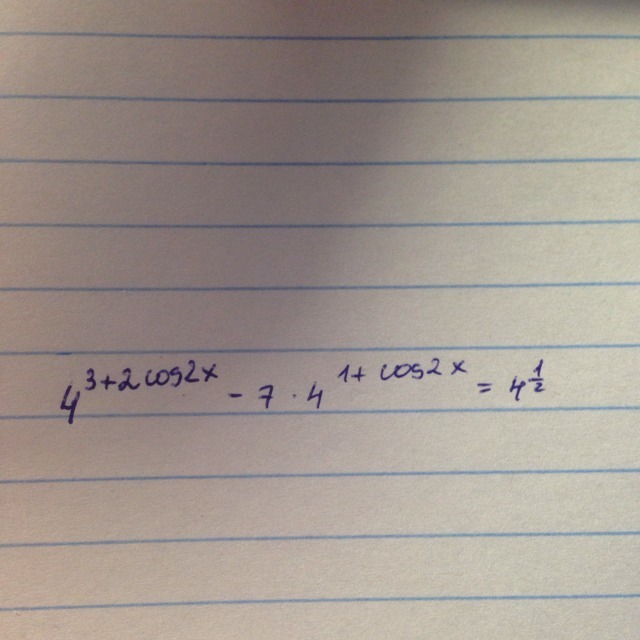 4^{3+2cos2x} - 7 · 4^{1+cos2x} = 4^{\frac{1}{2}}